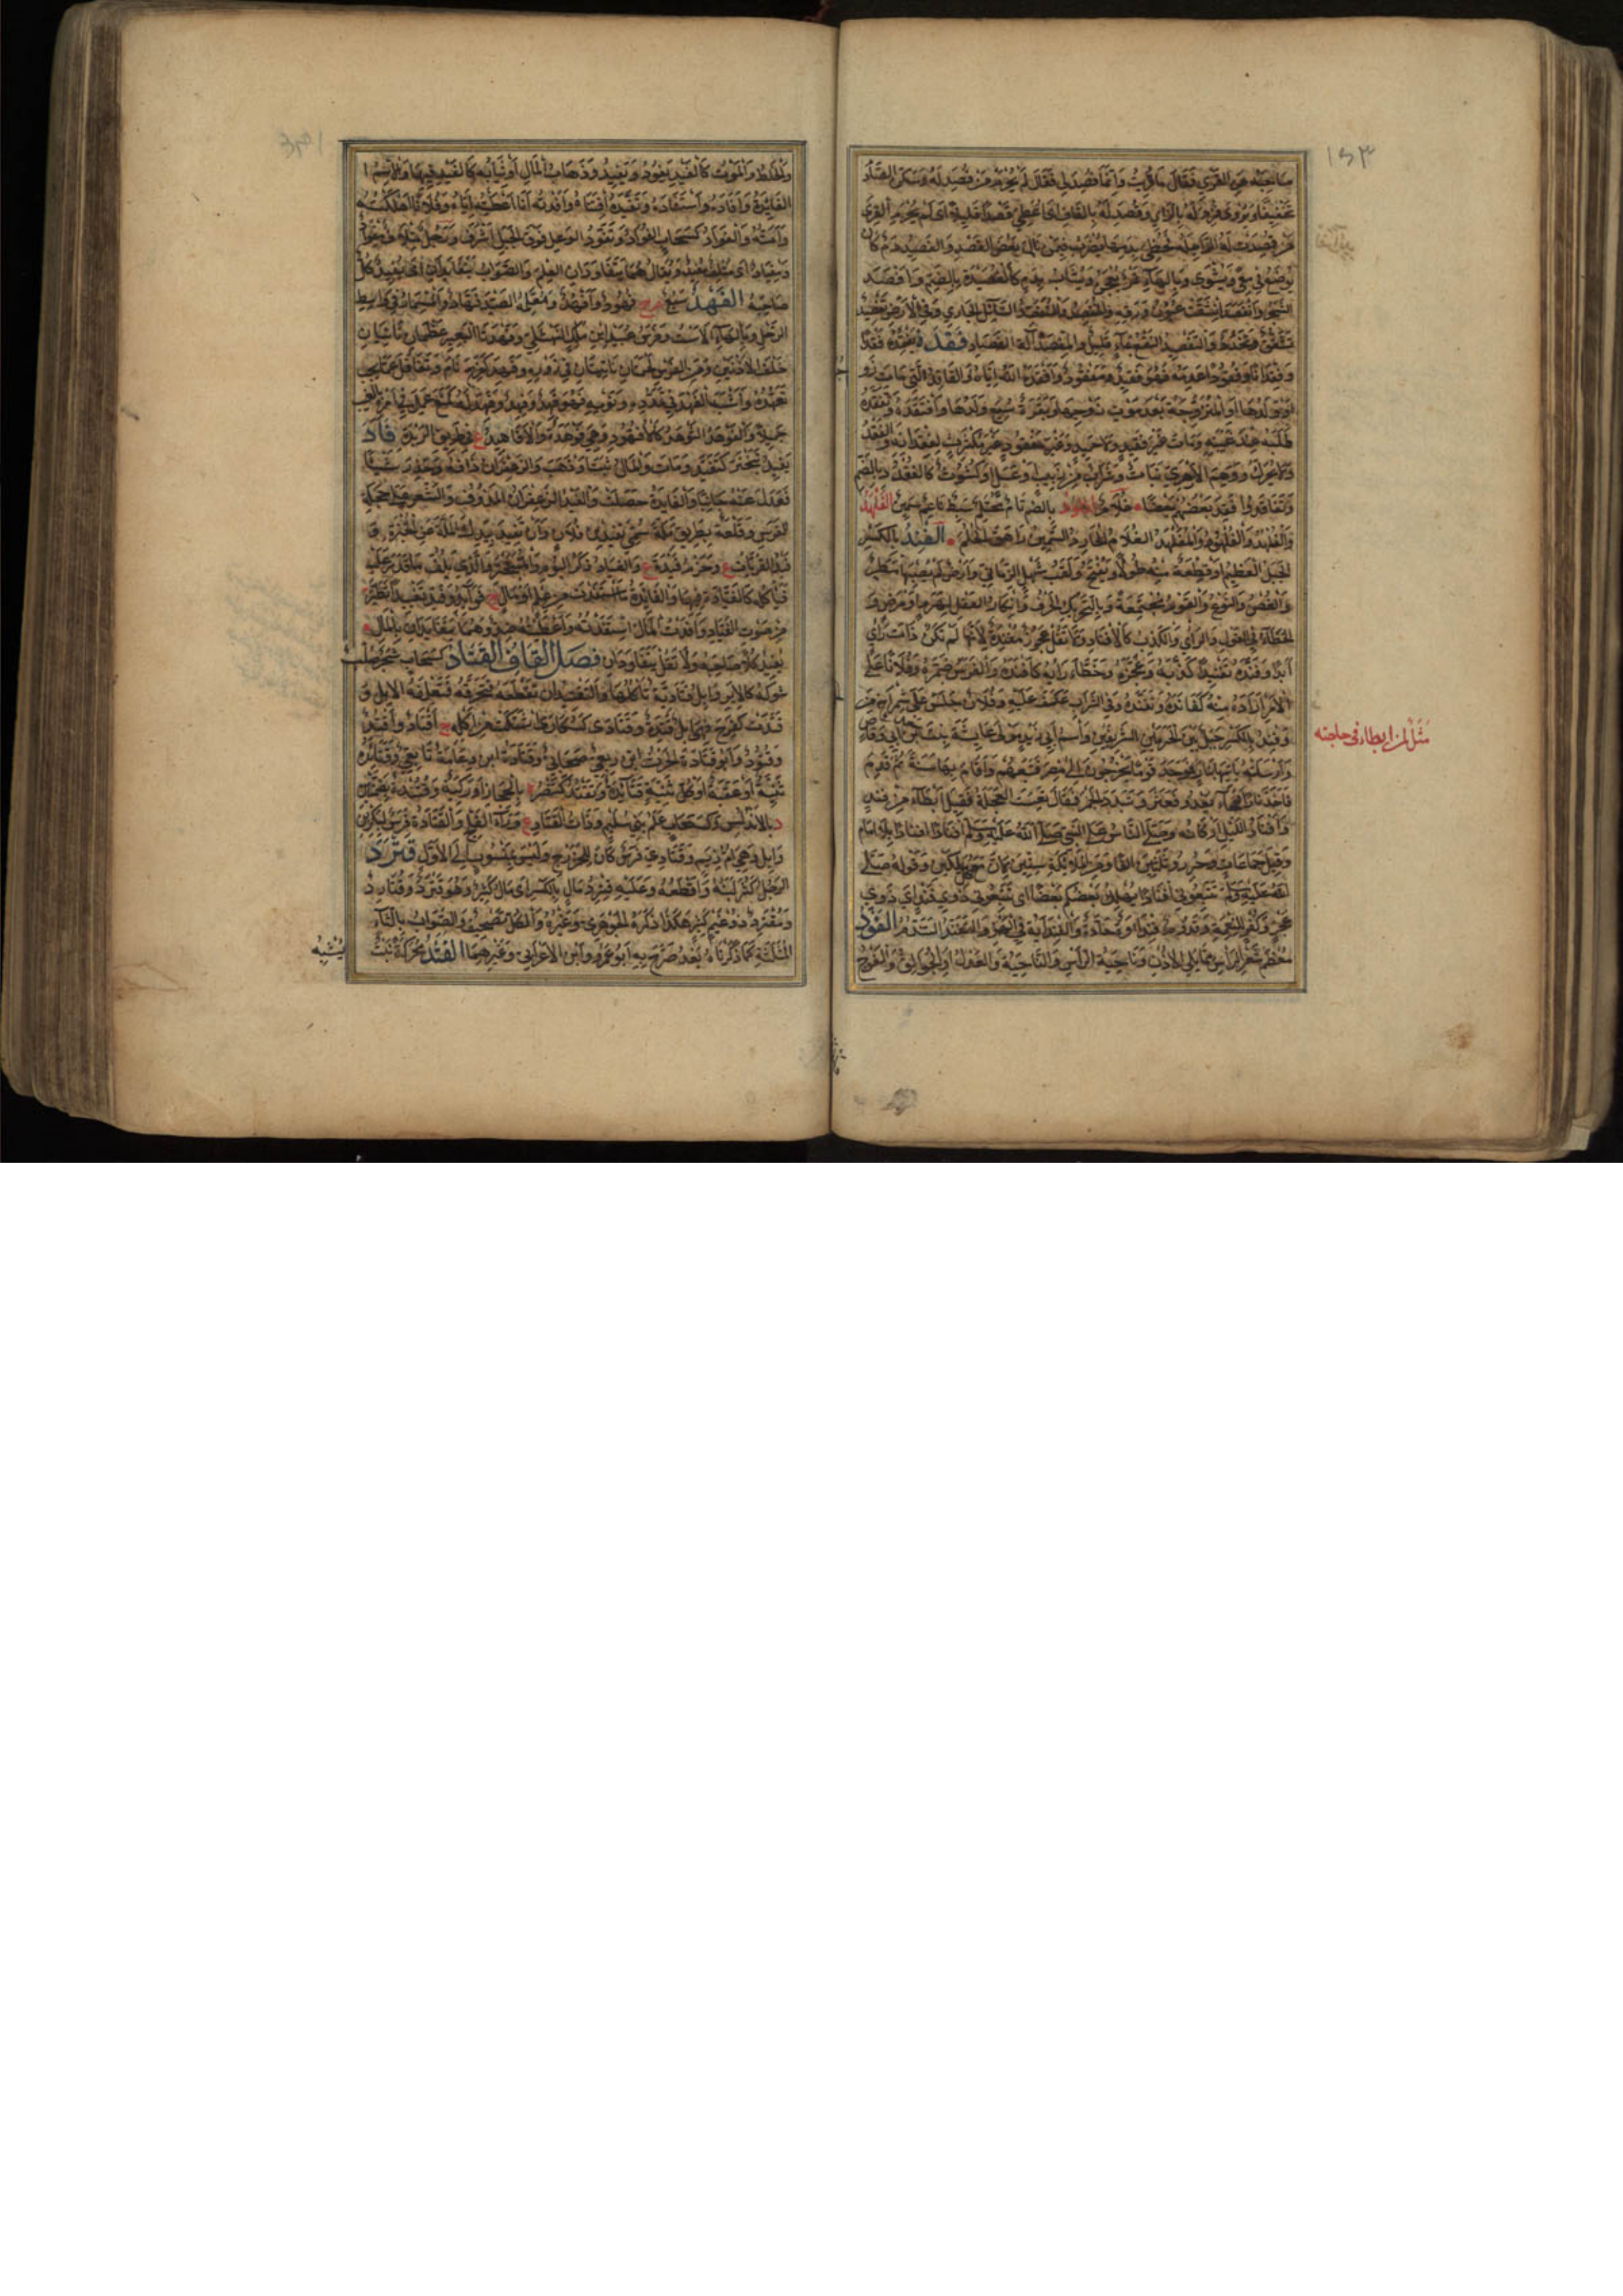 ١٥٣
صاحبه عن القرى فقال ما قريت وانما فصد لى فقال لم يحرم من فصد له وسكن الصاد
تخفيفا ويروى من فزد له بالزاى وقصد له بالقاف اى اعطى قصدا اى قليلا اى لم يحرم القرى
من فصدت له الراحلة فحظى بدمها يضرب فيمن نال بعض القصد والفصيد دم كان
يوضع فى معى ويشوى وبالهاء تمر يعجن ويشاب بدم كالفصدة بالضم وافصد
الشجر وانفصد انشقت عيون ورقه والمنفصد والمتفصد السائل الجارى وفى الارض تفصيد
تشقق وتخدد والتفصيد النقع بماء قليل والمفصد آلة الفصاد فقده يفقده فقدا
وفقدانا وفقودا عدمه فهو فقيد ومفقود وافقده الله اياه والفاقد التى مات زو
او ولدها او المتزوجة بعد موت زوجها وبقرة سبع ولدها وافتقده وتفقده
طلبه عند غيبته ومات غير فقيد ولا حميد وغير مفقود غير مكترث لفقدانه والفقد
ولا يحرك ووهم الازهرى نبات وشراب من زبيب او عسل او كشوث كالفقدد بالضم
وتفاقدوا فقد بعضهم بعضا غلام بالضم تام محتلم سبط ناعم سمين الفلهد
والفلهد والفلهود والمفلهد الغلام الحادر السمين راهق الحلم الفند بالكسر
الجبل العظيم او قطعة منه طولا ويفتح ولقب شهل الزمانى وارض لم يصبها مطر
والغصن والنوع والقوم مجتمعة وبالتحريك الخرف وانكار العقل لهرم او مرض و
الخطاء فى القول والراى والكذب كالافناد ولا تقل عجوز مفندة لانها لم تكن ذات راى
ابدا وفنده تفنيدا كذبه وعجزه وخطاء رايه كافنده والفرس ضمره وفلانا على
الامر اراده منه كفانده وتفنده وفى الشراب عكف عليه وفلان جلس على شمراخ من
وفند بالكسر جبل بين الحرمين الشريفين واسم ابى زيد مولى عايشة بنت سعد بن ابى وقاص
وارسلته ياتيها بنار فوجد قوما يخرجون الى مصر فتبعهم واقام بها سنة ثم قدم
فاخذ نارا وجاء يعدو فعثر وتبدد الجمر فقال تعست العجلة فقيل ابطاء من فند
وافناد الليل اركانه وصلى الناس على النبى صلى الله عليه وسلم افنادا افنادا بلا امام
وقيل جماعات وحزر وثلثين الفا ومن الملائكة ستين لان مع كل ملكين وقوله صلى
الله عليه وسلم تتبعونى افنادا يهلك بعضكم بعضا اى تتبعونى ذوى فند اى ذوى
عجز وكفر للنعمة وقدوم فنداوة حادة والفنداية فى الهمز والتفند التندم الفود
معظم شعر الراس مما يلى الاذن وناحية الراس والناحية والعدل او الجوالق والفوج
مثل لمن ابطاء فى حاجته
والخلط والموت كالفيد يفود ويفيد وذهاب المال او ثباته كالفيد فيها والاسم ا
الفايدة وافاده واستفاده وتفيده اقتناه وافدته انا اعطيته اياه وفلانا اهلكته
وامته والفواد كسحاب الفواد وتفود الوعل فوق الجبل اشرف ورجل متلاف مفواد
ومفياد اى متلف مفيد ويقال هما يتفاودان العلم والصواب يتفايدان اى يفيد كل
صاحبه الفهد سبع م ج فهود وافهد ومعلمه الصيد فهاد والمسمار فى واسط
الرحل وبالهاء الاست وفرس عبيد ابن مالك النهشلى وفهدتا البعير عظمان ناتيان
خلف الاذنين ومن الفرس لحمتان ناتيتان فى زوره وفهد كفرح نام وتغافل عما يجب
تعهده واشبه الفهد فى تمدده ونومه فهو فهد وفهد وفهد له كمنع عمل فيها من الغيب
جميلا والفوهد الثوهد كالافهود وهى فوهدة والافاهيد ع فى طريق الربذة فاد
يفيد تبختر كتفيد ومات والمال ثبت او ذهب والزعفران دافه وحذر شيئا
فعدل عنه جانبا والفايدة حصلت والفيد الزعفران المدوف والشعر على جحفلة
الفرس وقلعة بطريق مكة سمى بفيد بن فلان وان تفيد بيدك الملة عن الخبزة و
فيد القريات ع وحزم فيدة ع والفياد ذكر البوم والمتبختر والذى يلف ما قدر عليه
فياكله كالفيادة فيها والفايدة ما استفدت من علم او مال ج فوايد وفيد تفييدا تطير
من صوت الفياد وافدت المال استفدته واعطيته ضد وهما يتفايدان بالمال
يفيد كل صاحبه ولا تقل يتفاودان فصل القاف القتاد كسحاب شجر صلب
شوكه كالابر وابل قتادية تاكلها والتقتيد ان تقطعه فتحرقه فتعلفه الابل و
قتدت كفرح فهى ابل قتدة وقتادى كسكارى اشتكت من اكله ج اقتاد واقتد
وقتود وابو قتادة الحرث ابن ربعى صحابى وقتادة ابن دعامة تابعى وقتائدة
ثنية او عقبة او كل ثنية قتائدة وتقتد كتنصر بالحجاز او ركية وقتندة بضمتين
د بالاندلس وكسحاب علم بنى سليم وذات القتاد ع وراء الفلج والقتادة فرس لبكر بن
وايل وهى ام زيم وقتادى فرس كان للخزرج وليس بمنسوب الى الاول قترد
الرجل كثر لبنه واقطه وعليه قترد مال بالكسر اى مال كثير وهو قترد وقتارد
ومقترد ذو غنم كثير هكذا ذكره الجوهرى وغيره والكل تصحيف والصواب بالثاء
المثلثة كما ذكرناه بعد صرح به ابو عمرو وابن الاعرابى وغيرهما القثد محركة نبت
يشبه